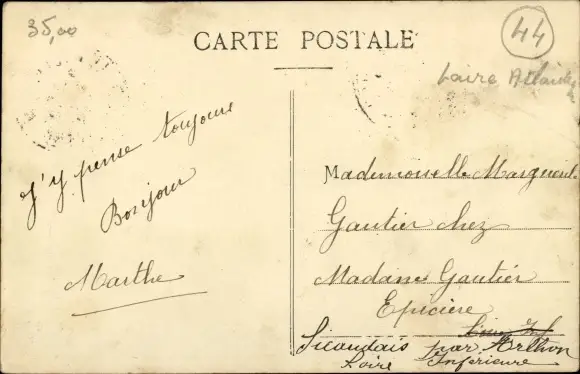 35,00
CARTE POSTALE
44
Loire Atlantique
J'y pense toujours
Bonjour
Marthe
Mademoiselle Marguerite
Gautier chez
Madame Gautier
Epicière
Sicaudais par Arthon
Loire Inférieure